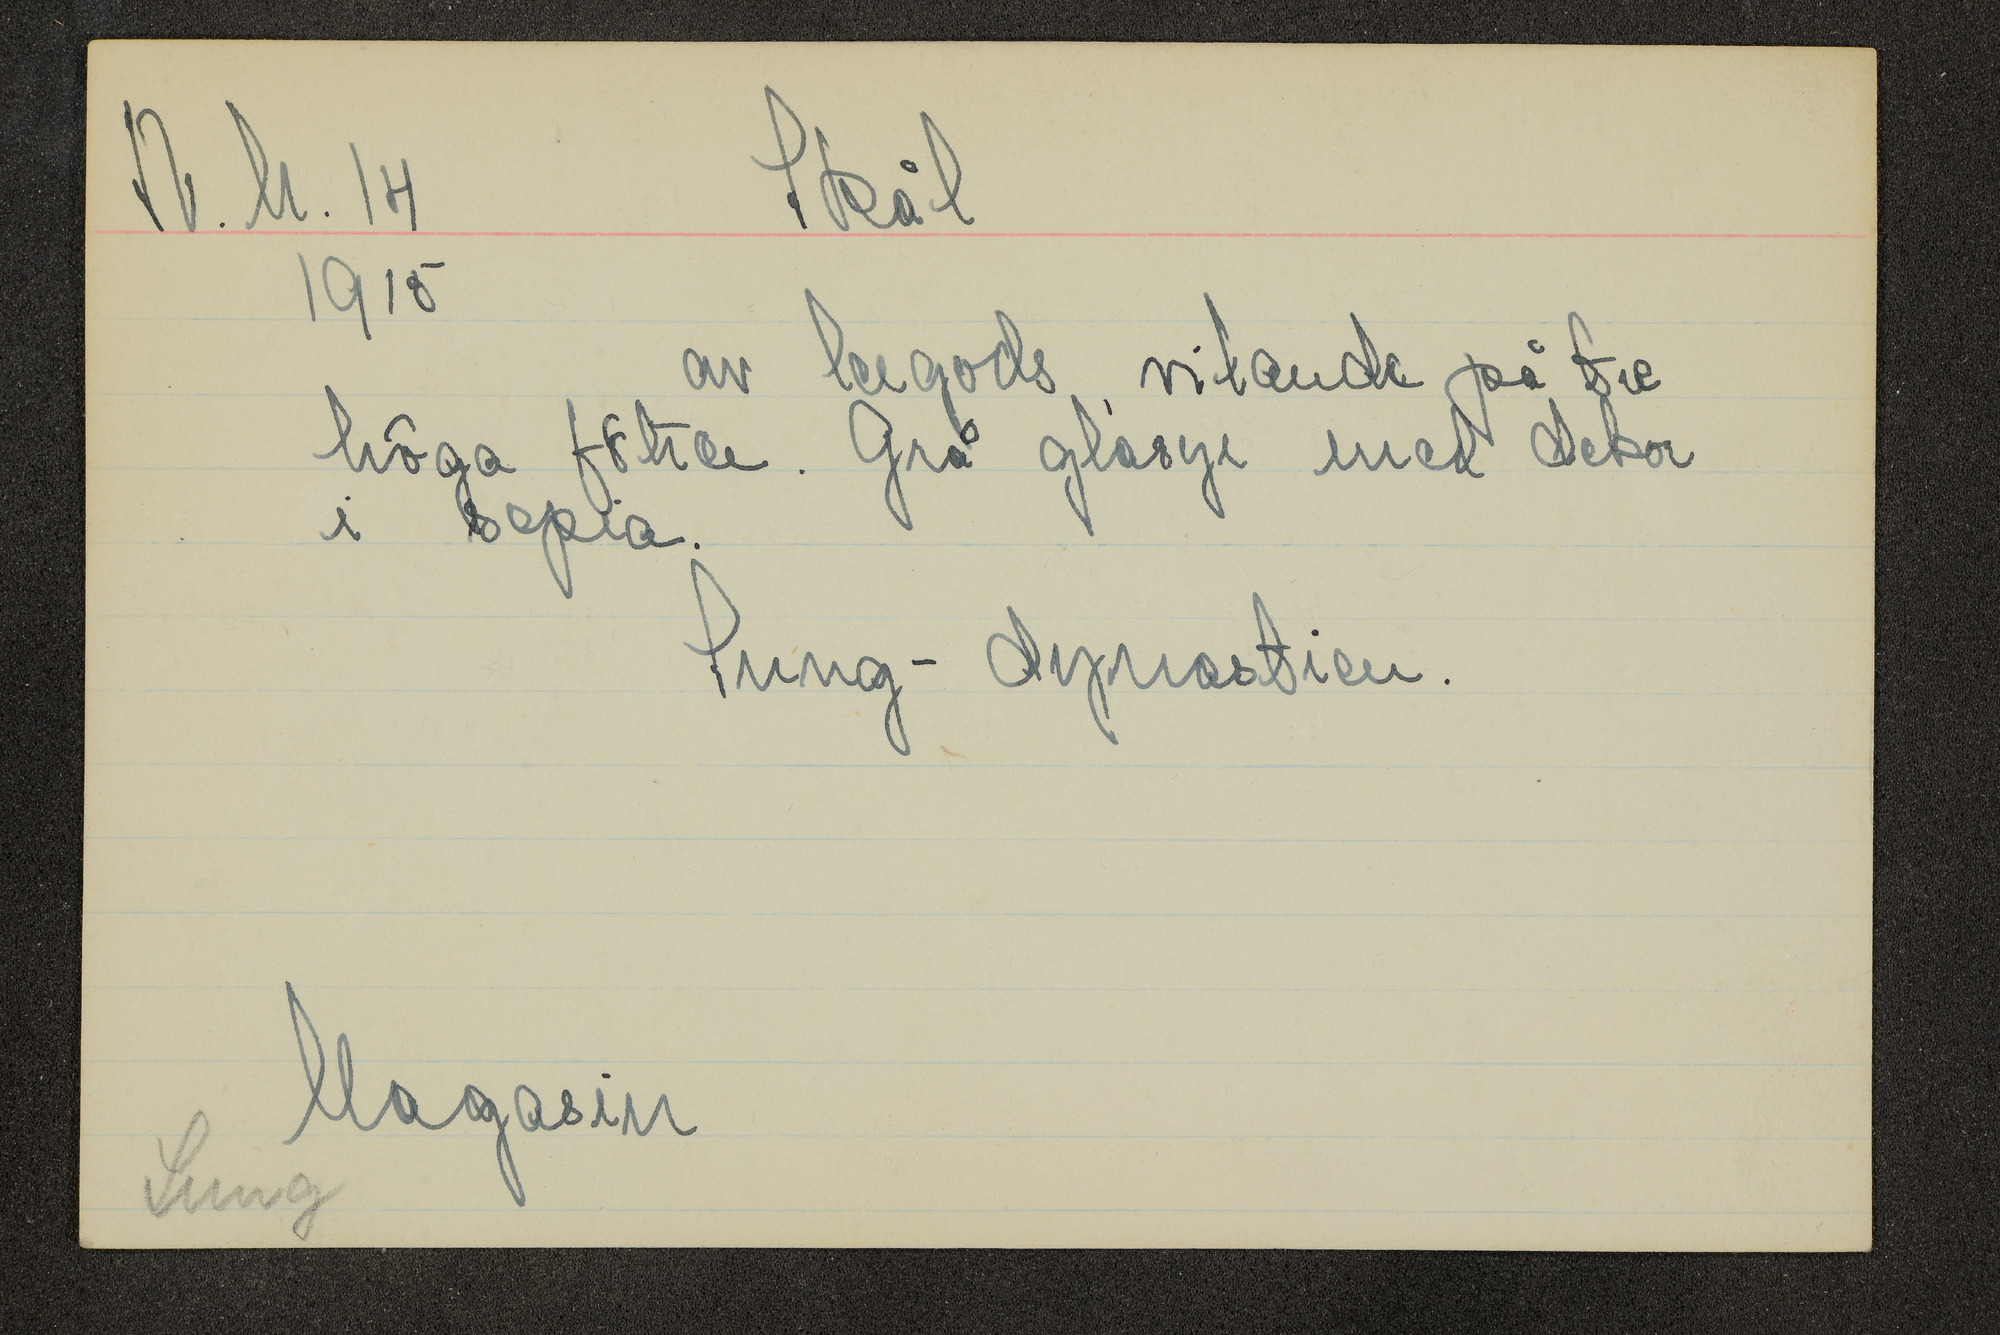 N. M. 14 Skål
1915
av lergods, vilande på tre
höga fötter. Grå glasyr med dekor
i sepia.
Sung-dynastien.
Magasin
Sung